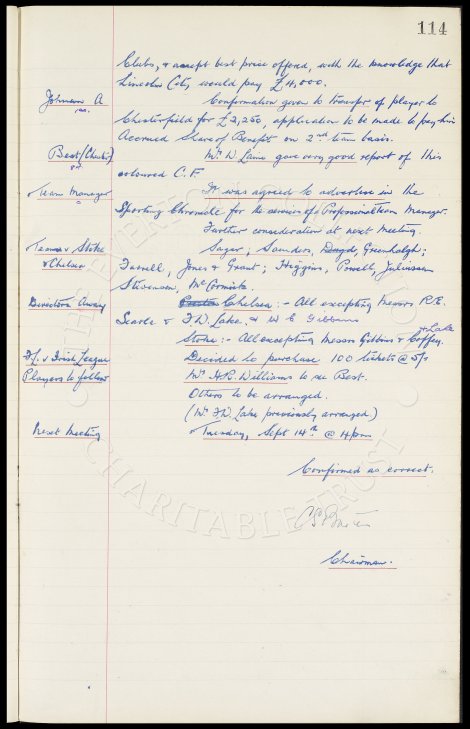 114
Clubs, & accept best price offered, with the knowledge that
Lincoln City would pay £4,000.
Johnson A
Confirmation given to transfer of player to
Chesterfield for £2,250, application to be made to pay him
Accrued Share of Benefit on 2nd team basis.
Best (Chester)
Mr W. Laine gave very good report of this
coloured C.F.
Team Manager
It was agreed to advertise in the
Sporting Chronicle for the services of a Professional Team Manager.
Further consideration at next Meeting.
Teams v Stoke
Sagar; Saunders, Greenhalgh;
& Chelsea
Farrell, Jones & Grant; Higgins, Powell, Juliussen
Stevenson, McCormick.
Directors Away
Chelsea :- All excepting Messrs R.E.
Searle & T.W. Lake. & W C Gibbins
Stoke :- All excepting Messrs Gibbins & Coffey.
& Lake
F.L. v Irish League
Decided to purchase 100 tickets @ 5/s
Players to follow
Mr H.R. Williams to see Best.
Others to be arranged.
(Mr T.W. Lake previously arranged)
Next Meeting
Tuesday, Sept 14th @ 4pm
Confirmed as correct.
Chairman.
THE EVERTON
CHARITABLE TRUST